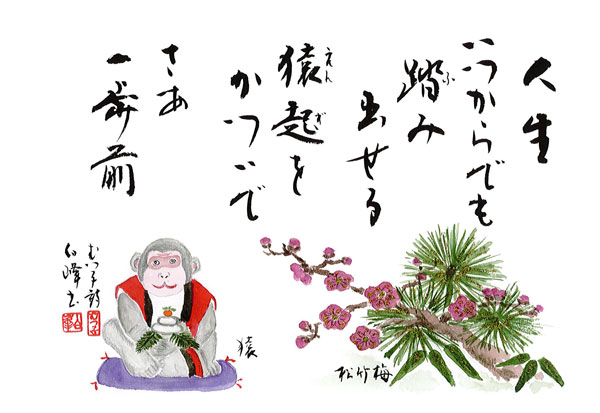 人生
いつからでも
踏み
ふ
出せる
猿起を
えんぎ
かついで
さあ
一歩前
むつ子詩
白峰書
猿
松竹梅